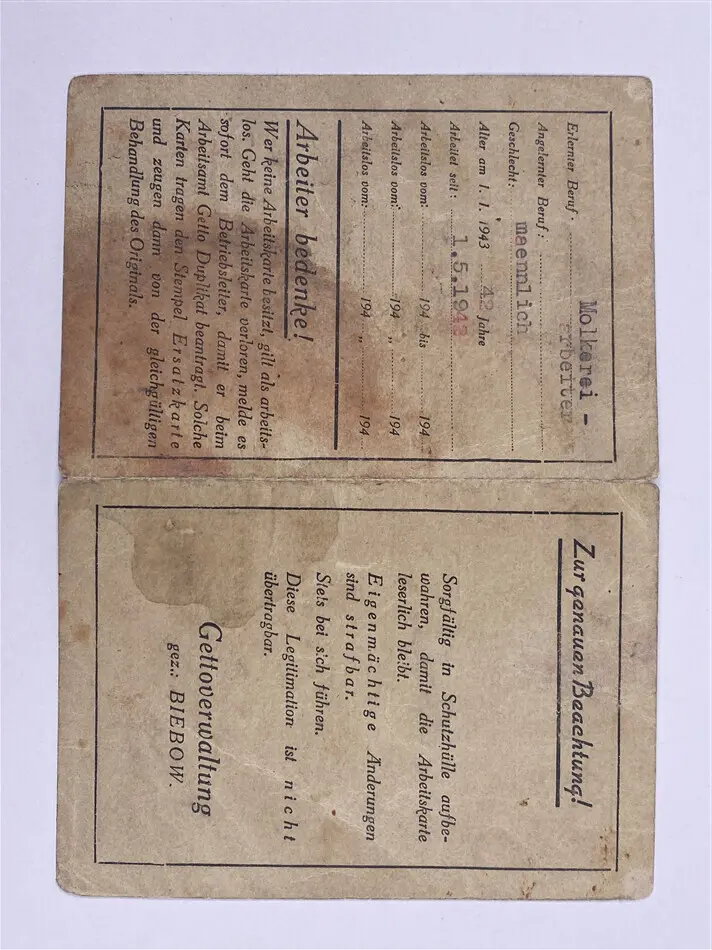 Erlernter Beruf: Molkerei -
arbeiter
Angelernter Beruf:
Geschlecht: maennlich
Alter am 1. 1. 1943 42 Jahre
Arbeitet seit: 1.5.1943
Arbeitslos vom: 194 bis 194
Arbeitslos vom: 194 „ 194
Arbeitslos vom: 194 „ 194
Arbeiter bedenke!
Wer keine Arbeitskarte besitzt, gilt als arbeits-
los. Geht die Arbeitskarte verloren, melde es
sofort dem Betriebsleiter, damit er beim
Arbeitsamt Getto Duplikat beantragt. Solche
Karten tragen den Stempel Ersatzkarte
und zeugen dann von der gleichgültigen
Behandlung des Originals.
Zur genauen Beachtung!
Sorgfältig in Schutzhülle aufbe-
wahren, damit die Arbeitskarte
leserlich bleibt.
Eigenmächtige Änderungen
sind strafbar.
Stets bei sich führen.
Diese Legitimation ist nicht
übertragbar.
Gettoverwaltung
gez.: BIEBOW.